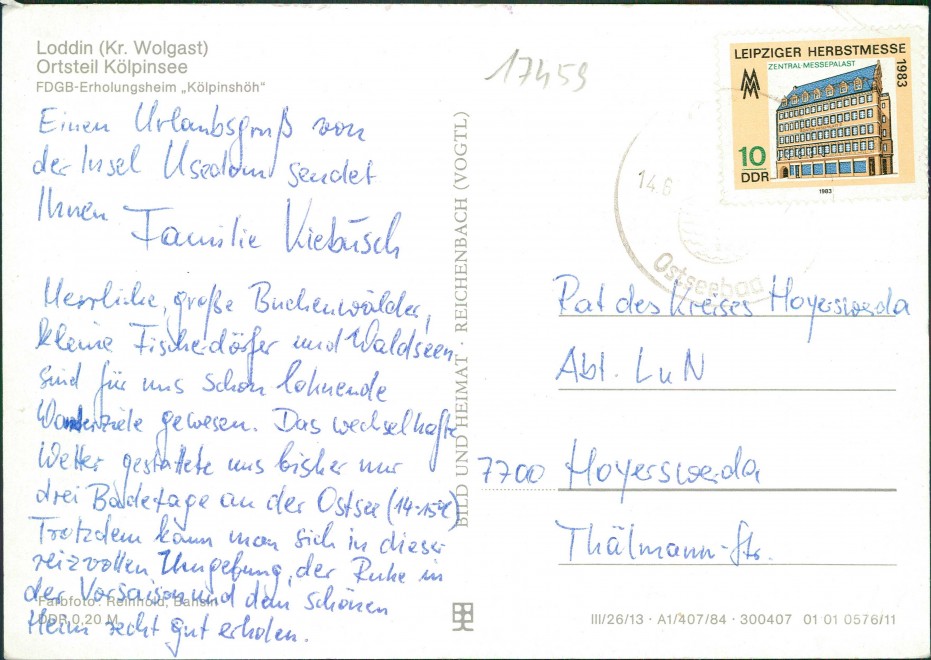 Loddin (Kr. Wolgast)
Ortsteil Kölpinsee
FDGB-Erholungsheim „Kölpinshöh“
Einen Urlaubsgruß von
der Insel Usedom sendet
Ihnen Familie Kiebusch
Herrliche, große Buchenwälder,
kleine Fischerdörfer und Waldseen
sind für uns schon lohnende
Wanderziele gewesen. Das wechselhafte
Wetter gestattete uns bisher nur
drei Badetage an der Ostsee (14-15°C)
Trotzdem kann man sich in dieser
reizvollen Umgebung, der Ruhe in
der Vorsaison und dem schönen
Heim recht gut erholen.
Farbfoto: Reinhold, Bansin
DDR 0,20 M
BILD UND HEIMAT · REICHENBACH (VOGTL)
17459
LEIPZIGER HERBSTMESSE
1983
ZENTRAL-MESSEPALAST
10
DDR
1983
14.6
Ostseebad
Rat des Kreises Hoyerswerda
Abt. LuN
7700 Hoyerswerda
Thälmann-Str.
III/26/13 · A1/407/84 · 300407 01 01 0576/11